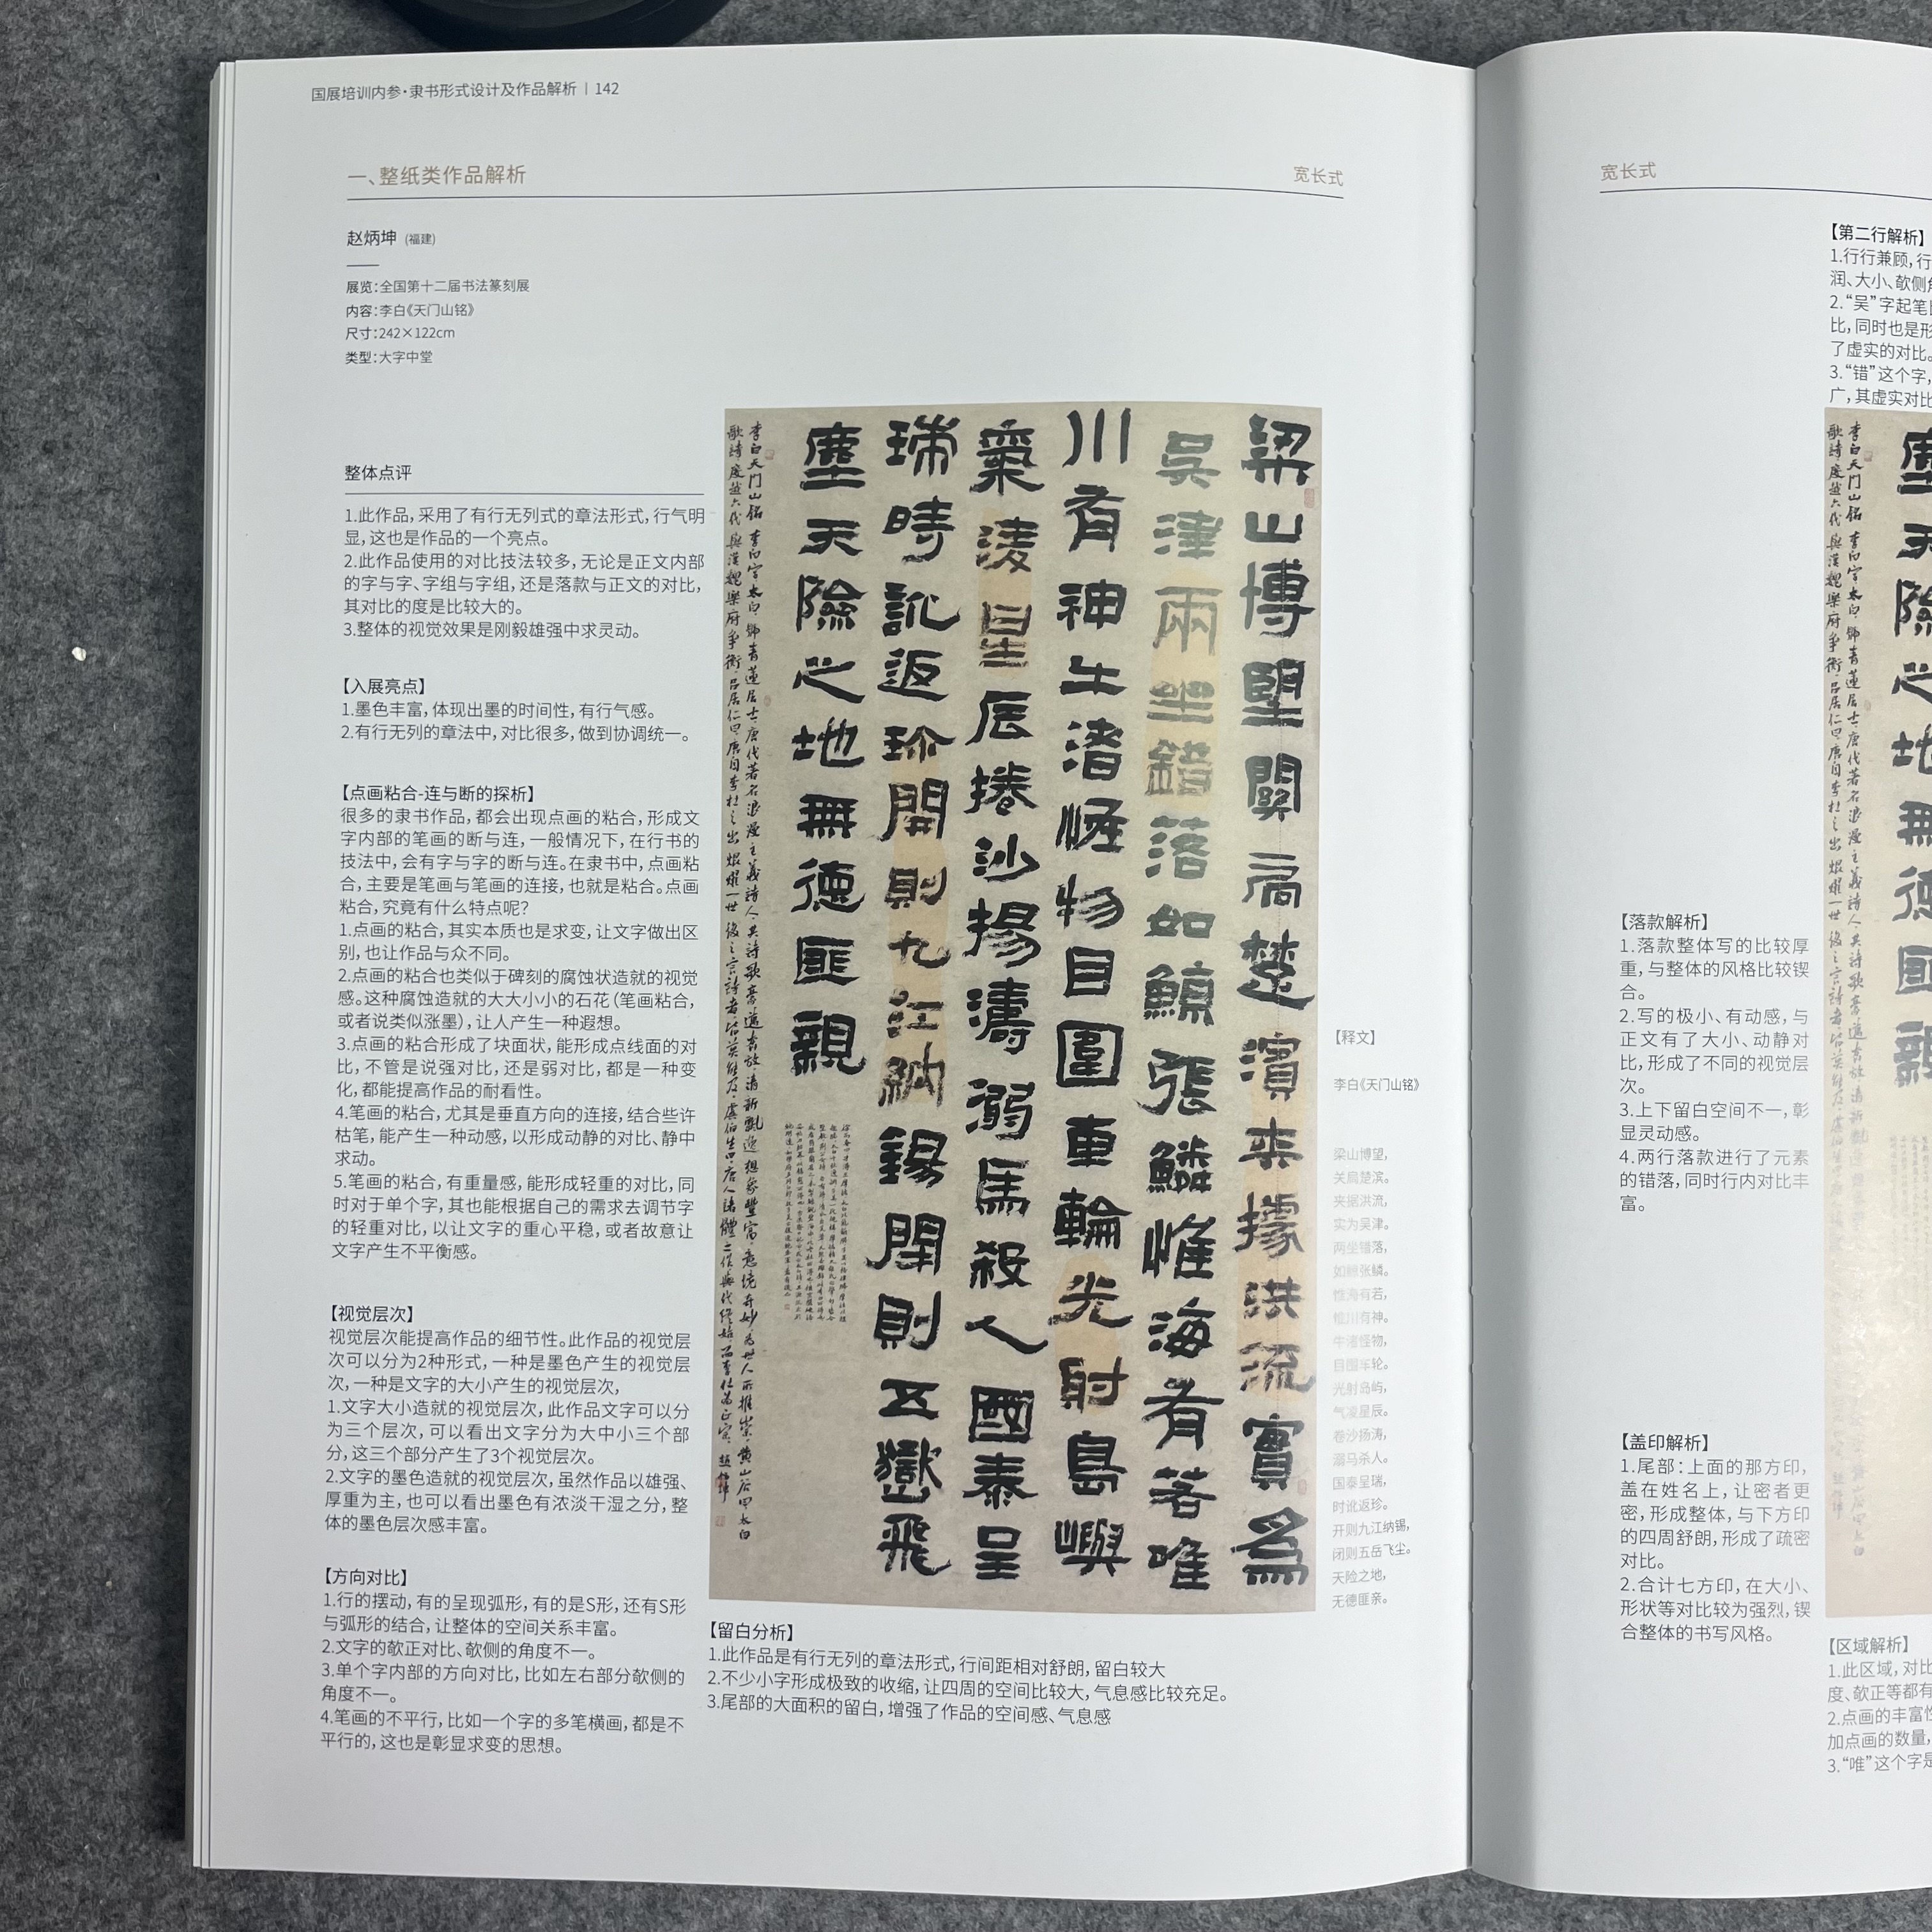 国展培训内参·隶书形式设计及作品解析 | 142
一、整纸类作品解析
宽长式
赵炳坤 (福建)
展览:全国第十二届书法篆刻展
内容:李白《天门山铭》
尺寸:242×122cm
类型:大字中堂
整体点评
1.此作品,采用了有行无列式的章法形式,行气明
显,这也是作品的一个亮点。
2.此作品使用的对比技法较多,无论是正文内部
的字与字、字组与字组,还是落款与正文的对比,
其对比的度是比较大的。
3.整体的视觉效果是刚毅雄强中求灵动。
【入展亮点】
1.墨色丰富,体现出墨的时间性,有行气感。
2.有行无列的章法中,对比很多,做到协调统一。
【点画粘合-连与断的探析】
很多的隶书作品,都会出现点画的粘合,形成文
字内部的笔画的断与连,一般情况下,在行书的
技法中,会有字与字的断与连。在隶书中,点画粘
合,主要是笔画与笔画的连接,也就是粘合。点画
粘合,究竟有什么特点呢?
1.点画的粘合,其实本质也是求变,让文字做出区
别,也让作品与众不同。
2.点画的粘合也类似于碑刻的腐蚀状造就的视觉
感。这种腐蚀造就的大大小小的石花(笔画粘合,
或者说类似涨墨),让人产生一种遐想。
3.点画的粘合形成了块面状,能形成点线面的对
比,不管是说强对比,还是弱对比,都是一种变
化,都能提高作品的耐看性。
4.笔画的粘合,尤其是垂直方向的连接,结合些许
枯笔,能产生一种动感,以形成动静的对比、静中
求动。
5.笔画的粘合,有重量感,能形成轻重的对比,同
时对于单个字,其也能根据自己的需求去调节字
的轻重对比,以让文字的重心平稳,或者故意让
文字产生不平衡感。
【视觉层次】
视觉层次能提高作品的细节性。此作品的视觉层
次可以分为2种形式,一种是墨色产生的视觉层
次,一种是文字的大小产生的视觉层次,
1.文字大小造就的视觉层次,此作品文字可以分
为三个层次,可以看出文字分为大中小三个部
分,这三个部分产生了3个视觉层次。
2.文字的墨色造就的视觉层次,虽然作品以雄强、
厚重为主,也可以看出墨色有浓淡干湿之分,整
体的墨色层次感丰富。
【方向对比】
1.行的摆动,有的呈现弧形,有的是S形,还有S形
与弧形的结合,让整体的空间关系丰富。
2.文字的欹正对比、欹侧的角度不一。
3.单个字内部的方向对比,比如左右部分欹侧的
角度不一。
4.笔画的不平行,比如一个字的多笔横画,都是不
平行的,这也是彰显求变的思想。
梁山博朢關扃楚濱夾據洪流實為
吳津兩坐錯落如鯨張鱗惟海有若唯
川有神牛渚怪物目圍車輪光射島嶼
氣淩星辰捲沙揚濤溺馬殺人國泰呈
瑞時訛返珍開則九江納錫閉則五嶽飛
塵天險之地無德匪親
【释文】
李白《天门山铭》
梁山博望,
关扃楚滨。
夹据洪流,
实为吴津。
两坐错落,
如鲸张鳞。
惟海有若,
惟川有神。
牛渚怪物,
目围车轮。
光射岛屿,
气凌星辰。
卷沙扬涛,
溺马杀人。
国泰呈瑞,
时讹返珍。
开则九江纳锡,
闭则五岳飞尘。
天险之地,
无德匪亲。
【留白分析】
1.此作品是有行无列的章法形式,行间距相对舒朗,留白较大
2.不少小字形成极致的收缩,让四周的空间比较大,气息感比较充足。
3.尾部的大面积的留白,增强了作品的空间感、气息感
宽长式
【第二行解析】
1.行行兼顾,行
润、大小、欹侧
2.“吴”字起笔
比,同时也是形
了虚实的对比。
3.“错”这个字,
广,其虚实对比
【落款解析】
1.落款整体写的比较厚
重,与整体的风格比较锲
合。
2.写的极小、有动感,与
正文有了大小、动静对
比,形成了不同的视觉层
次。
3.上下留白空间不一,彰
显灵动感。
4.两行落款进行了元素
的错落,同时行内对比丰
富。
【盖印解析】
1.尾部:上面的那方印,
盖在姓名上,让密者更
密,形成整体,与下方印
的四周舒朗,形成了疏密
对比。
2.合计七方印,在大小、
形状等对比较为强烈,锲
合整体的书写风格。
【区域解析】
1.此区域,对比
度、欹正等都有
2.点画的丰富性
加点画的数量,
3.“唯”这个字是